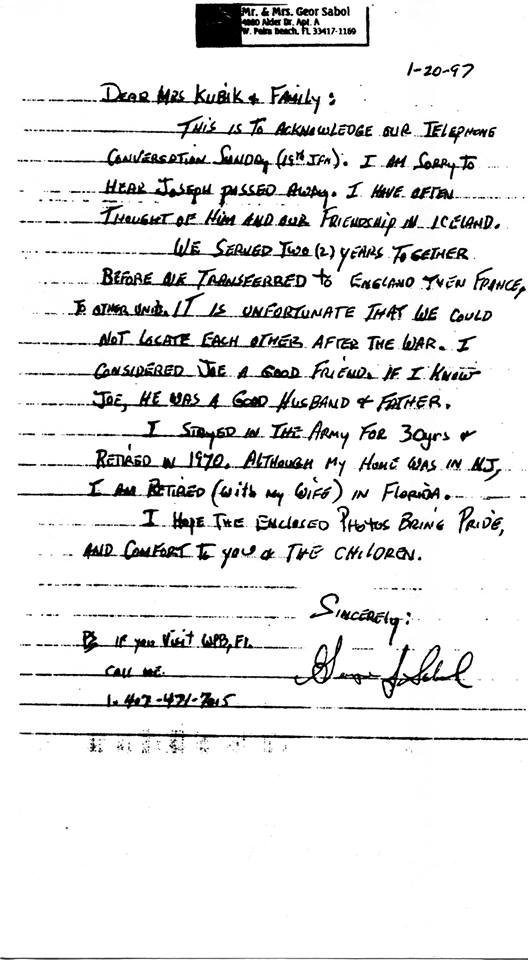 Mr. & Mrs. Geor Sabol
4880 Alder Dr. Apt. A
W. Palm Beach, FL 33417-1189
1-20-97
DEAR MRS KUBIK & FAMILY:
THIS IS TO ACKNOWLEDGE OUR TELEPHONE
CONVERSATION SUNDAY (19th JAN). I AM SORRY TO
HEAR JOSEPH PASSED AWAY. I HAVE OFTEN
THOUGHT OF HIM AND OUR FRIENDSHIP IN ICELAND.
WE SERVED TWO (2) YEARS TOGETHER
BEFORE WE TRANSFERRED to ENGLAND THEN FRANCE,
TO OTHER UNITS. IT IS UNFORTUNATE THAT WE COULD
NOT LOCATE EACH OTHER AFTER THE WAR. I
CONSIDERED JOE A GOOD FRIEND. IF I KNOW
JOE, HE WAS A GOOD HUSBAND & FATHER.
I STAYED IN THE ARMY FOR 30yrs &
RETIRED IN 1970. ALTHOUGH MY HOME WAS IN NJ,
I AM RETIRED (With my WIFE) IN FLORIDA.
I HOPE THE ENCLOSED PHOTOS BRING PRIDE,
AND COMFORT TO you & THE CHILDREN.
SINCERELY:
PS IF you Visit WPB, Fl.
CALL ME.
George J Sabol
1-407-471-7015